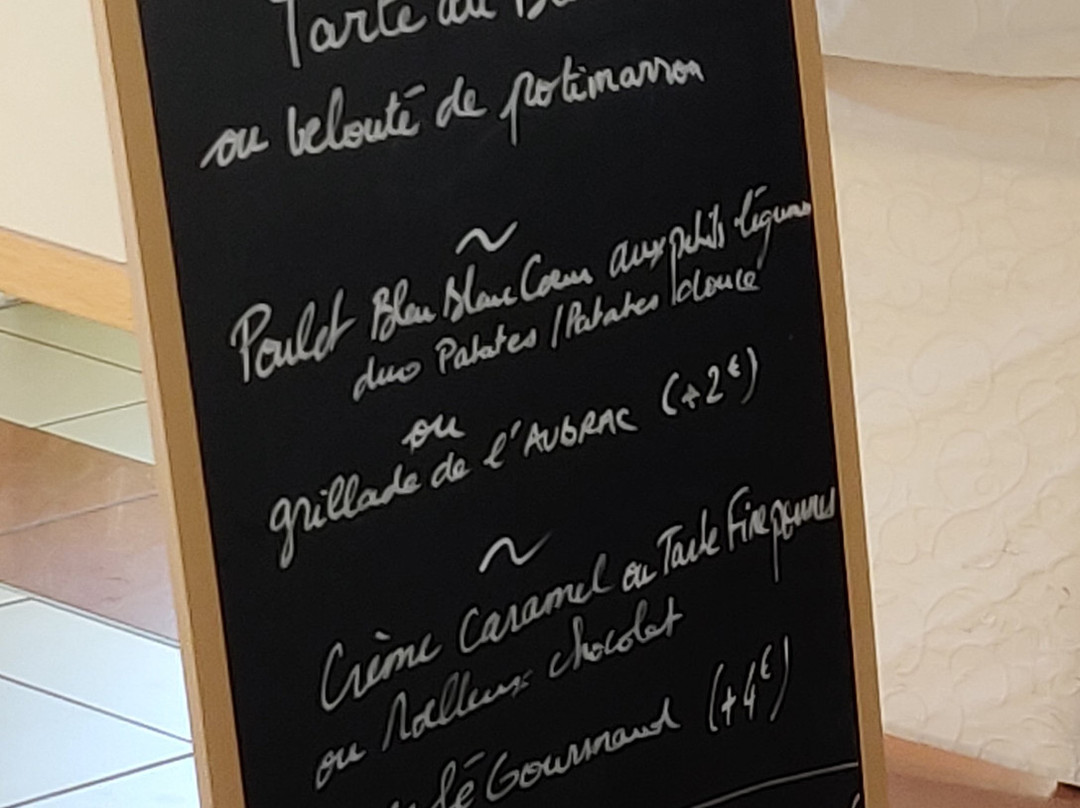 Tarte au
ou velouté de potimarron
~
Poulet Bleu Blanc Coeur aux petits légumes
duo Patates / Patates douce
ou
grillade de l'AUBRAC (+2€)
~
Crème Caramel ou Tarte Fine pommes
ou Moelleux chocolat
Gourmand (+4€)